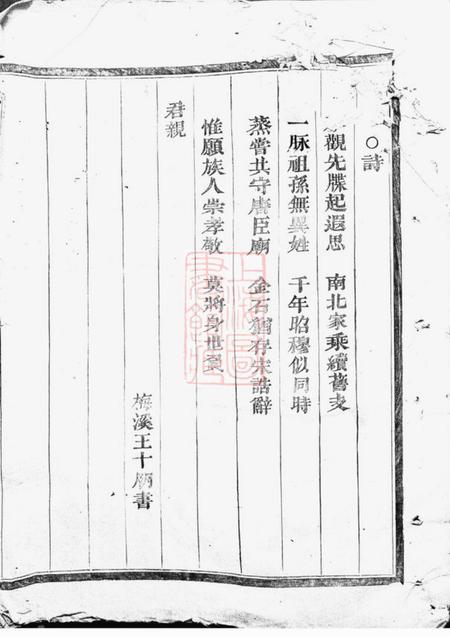 ○詩
觀先牒起遐思　南北家乘續舊支
一脉祖孫無異姓　千年昭穆似同時
蒸嘗共守唐臣廟　金石猶存宋誥辭
惟願族人崇孝敬　莫將身世
君親
梅溪王十朋書